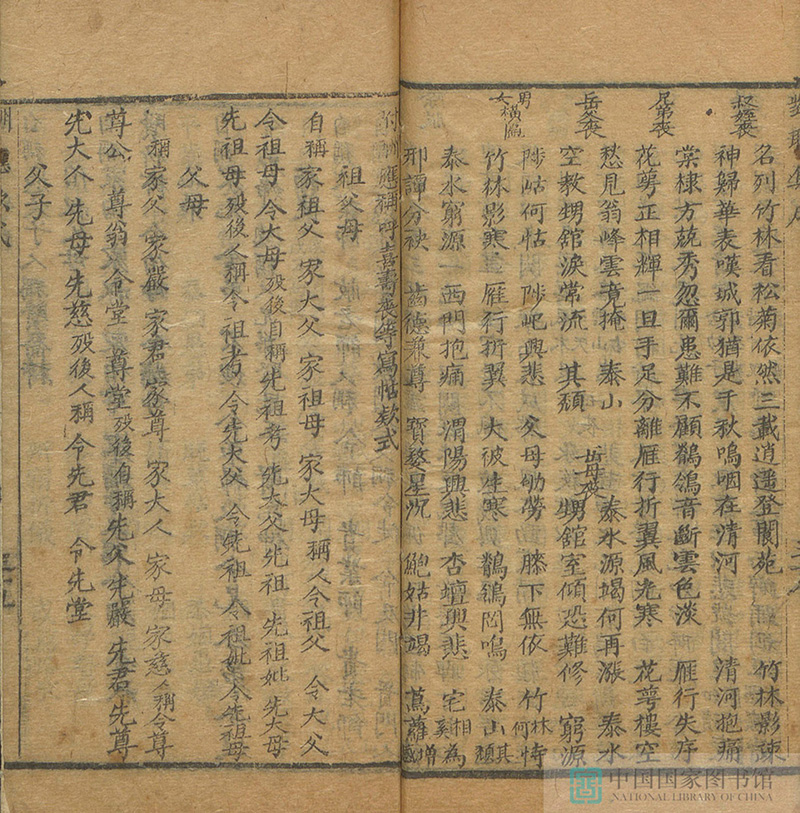 對聯集成
叔姪喪
名列竹林看松菊依然三載逍遥登閬苑 竹林影疎
神歸華表嘆城郭猶是千秋嗚咽在清河 清河抱痛
兄弟喪
棠棣方競秀忽爾患難不顧鶺鴒音斷雲色淡 雁行失序
花萼正相輝一旦手足分離雁行折翼風光寒 花萼樓空
岳翁喪
愁見翁峰雲竟掩 泰山
空教甥舘淚常流 其頹
岳母喪
泰水源竭何再漲 泰水
甥舘室傾恐難修 窮源
男女橫匾
陟岵何怙 陟屺興悲 父母劬勞 膝下無依 竹林何恃
竹林影寒 雁行折翼 大被生寒 鶺鴒罔鳴 泰山其頹
泰水窮源 西門抱痛 渭陽興悲 杏壇興悲 宅相奚為
邢譚分袂 齒德兼尊 寳婺星沉 鮑姑井竭 蔦蘿增感
附酬應稱呼喜壽喪等寫帖欵式
祖父母
自稱家祖父 家大父 家祖母 家大母 稱人令祖父 令大父
令祖母 令大母 歿後自稱先祖考 先大父 先祖 先祖妣 先大母
先祖母 歿後人稱令祖考 令先大父 令先祖 令祖妣 令先祖母
父母
自稱家父 家嚴 家君 家尊 家大人 家母 家慈 人稱令尊
尊公 尊翁 令堂 尊堂 歿後自稱先父 先嚴 先君 先尊
先大人 先母 先慈 歿後人稱 令先君 令先堂
父子